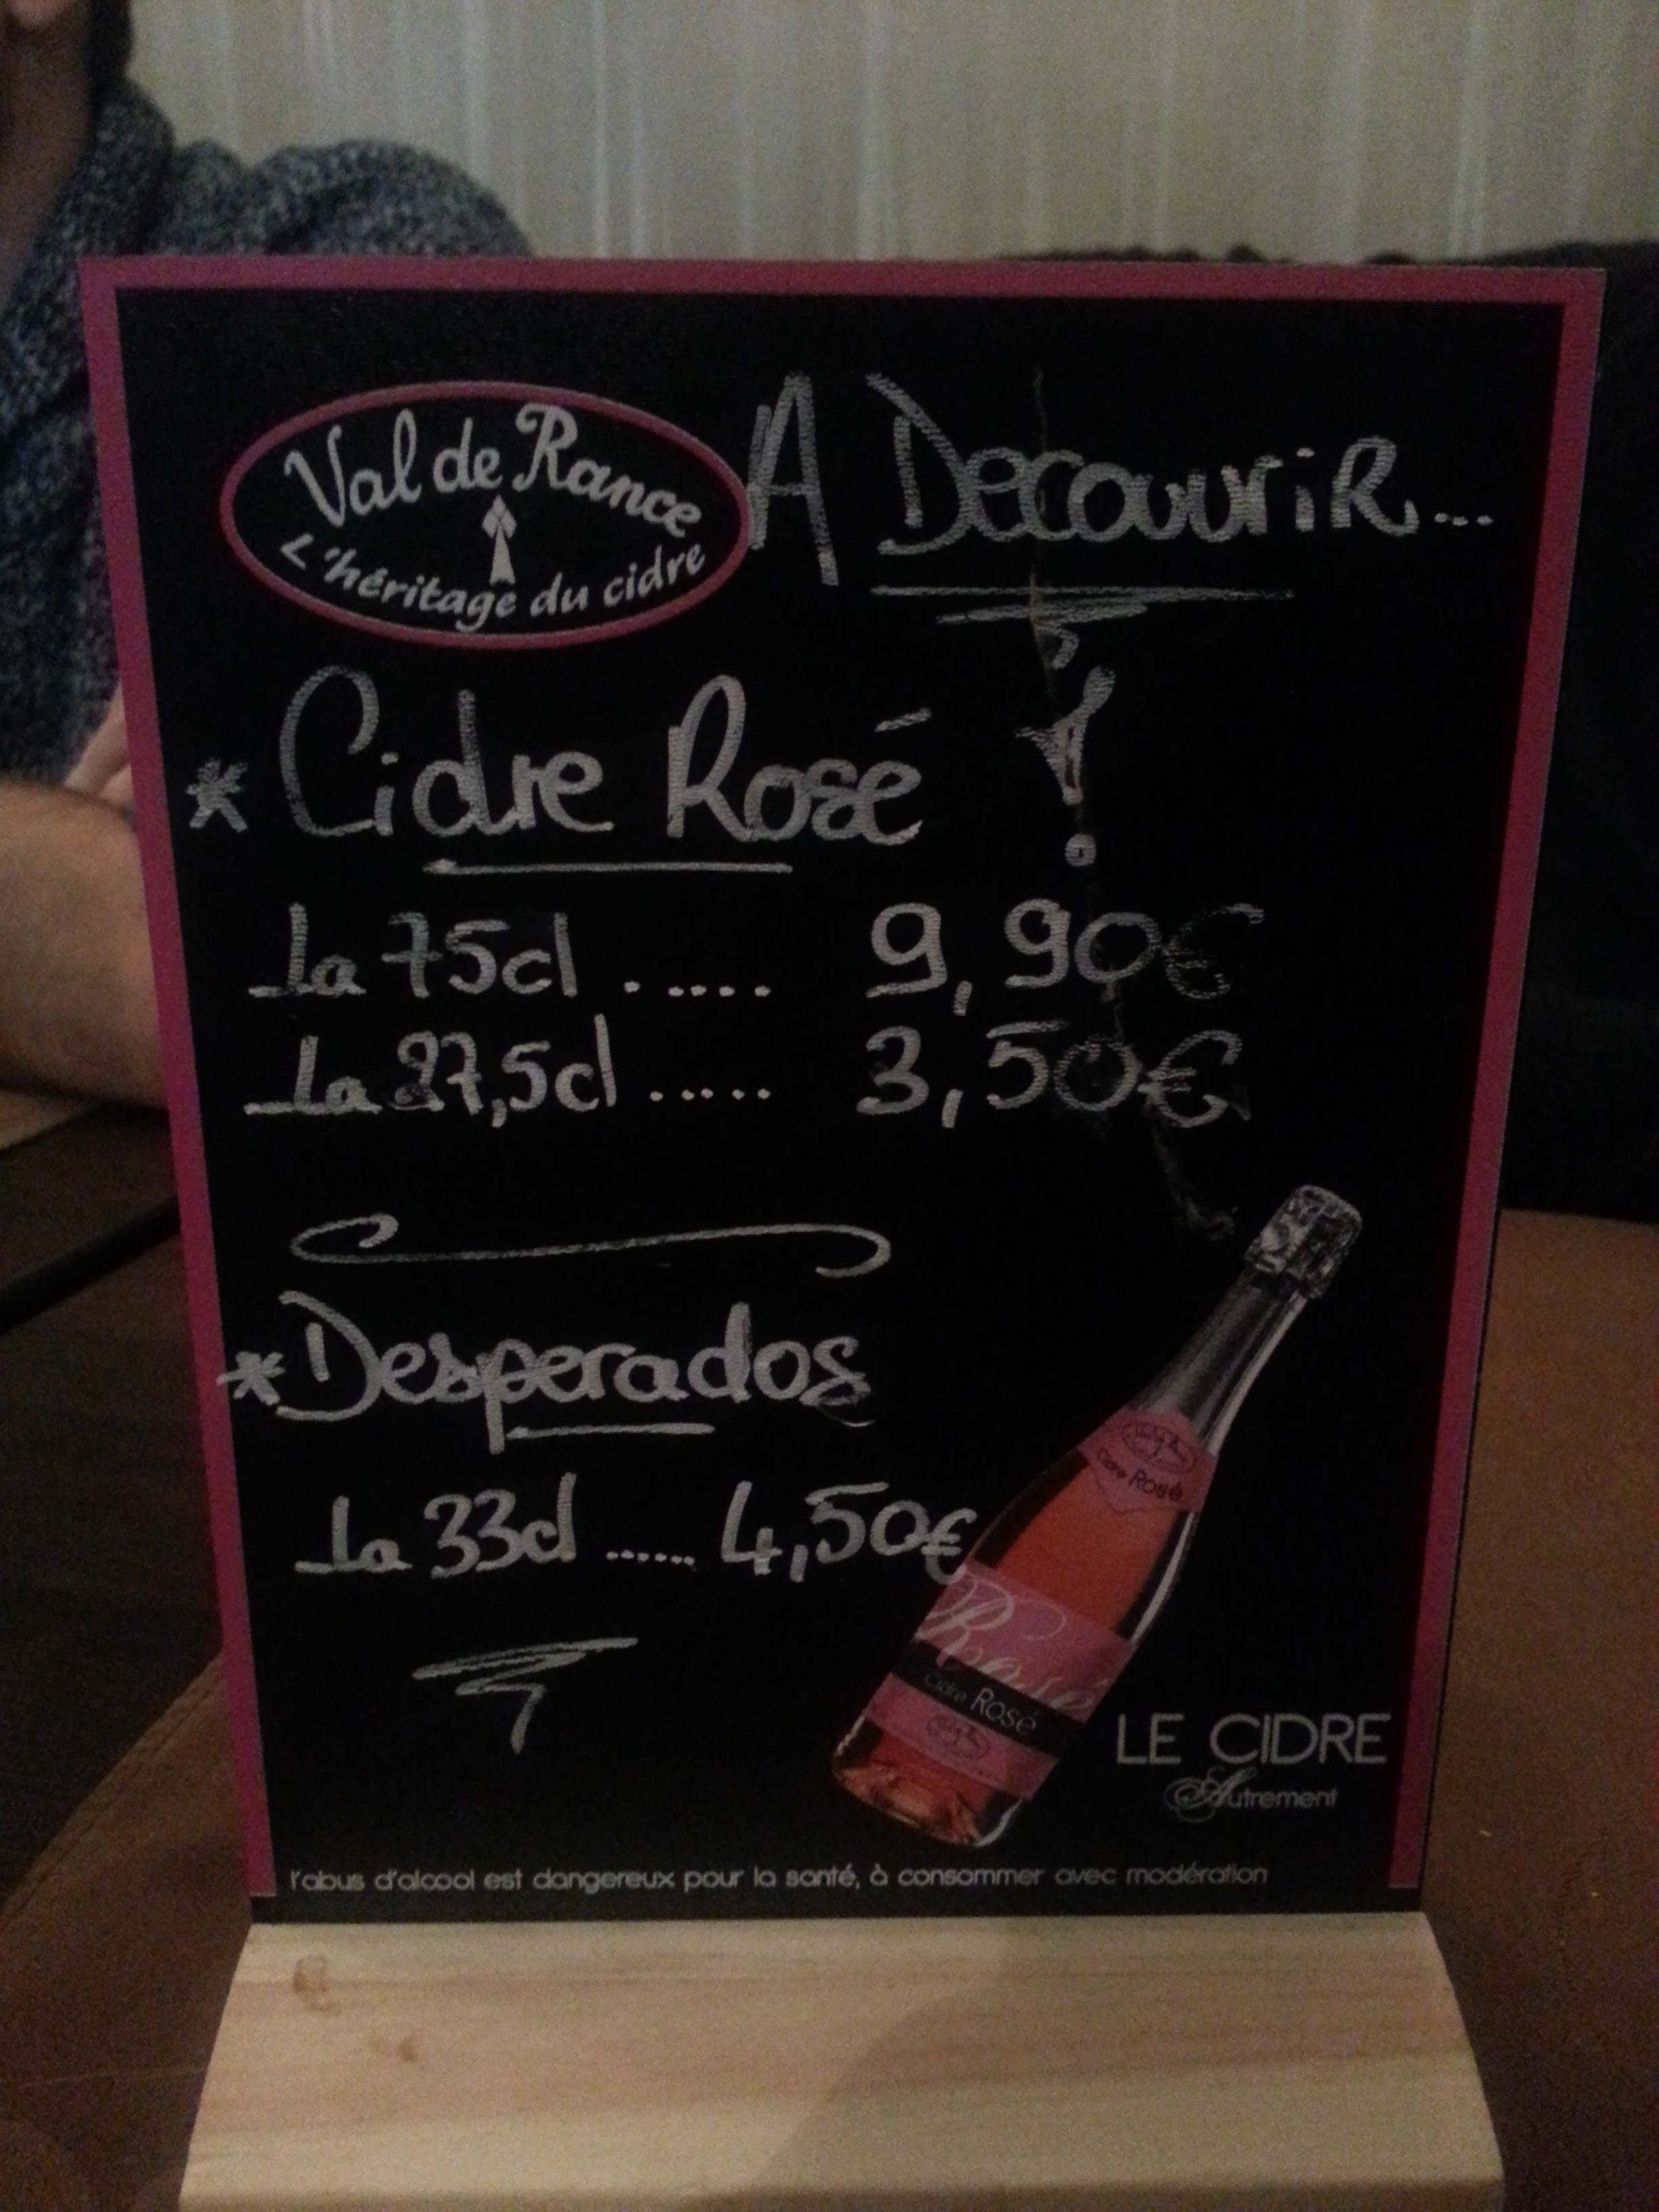 Val de Rance
L'héritage du cidre
A Decouvrir...
* Cidre Rosé !
La 75cl ..... 9,90€
La 27,5cl ..... 3,50€
* Desperados
La 33cl ...... 4,50€
Cidre Rosé
Rosé
Cidre Rosé
LE CIDRE
Autrement
l'abus d'alcool est dangereux pour la santé, à consommer avec modération